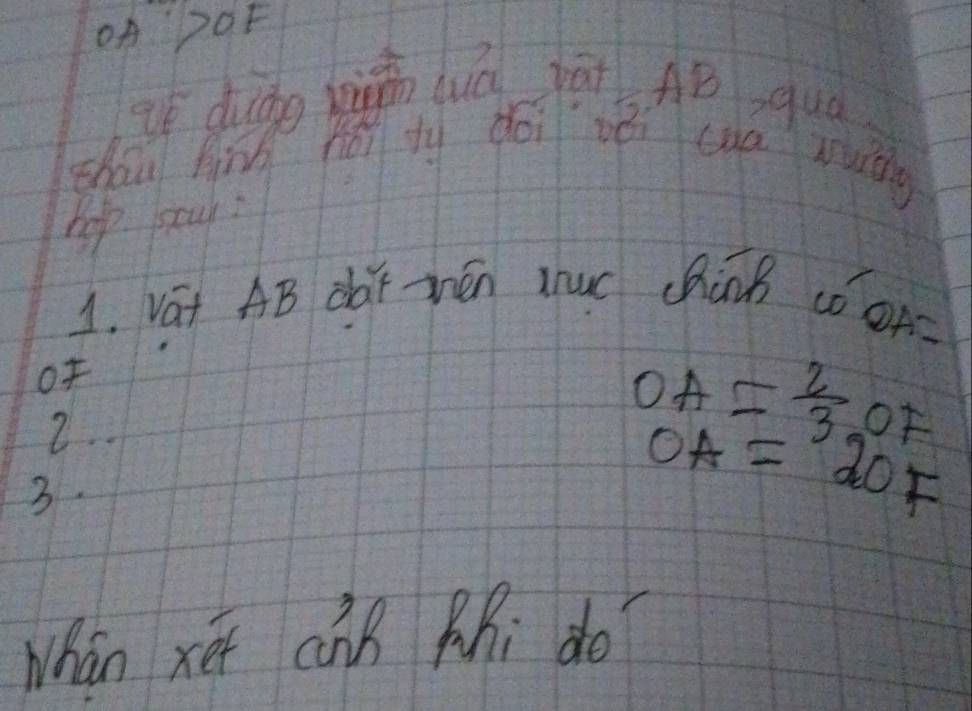 OA > OF
vẽ đường truyền của vật AB qua
thấu kính hội tụ đối với của trường
hợp sau:
1. Vật AB đặt trên trục chính có OA=
OF
2.. OA = 2/3 OF
3. OA = 2OF
Nhận xét ảnh khi đó